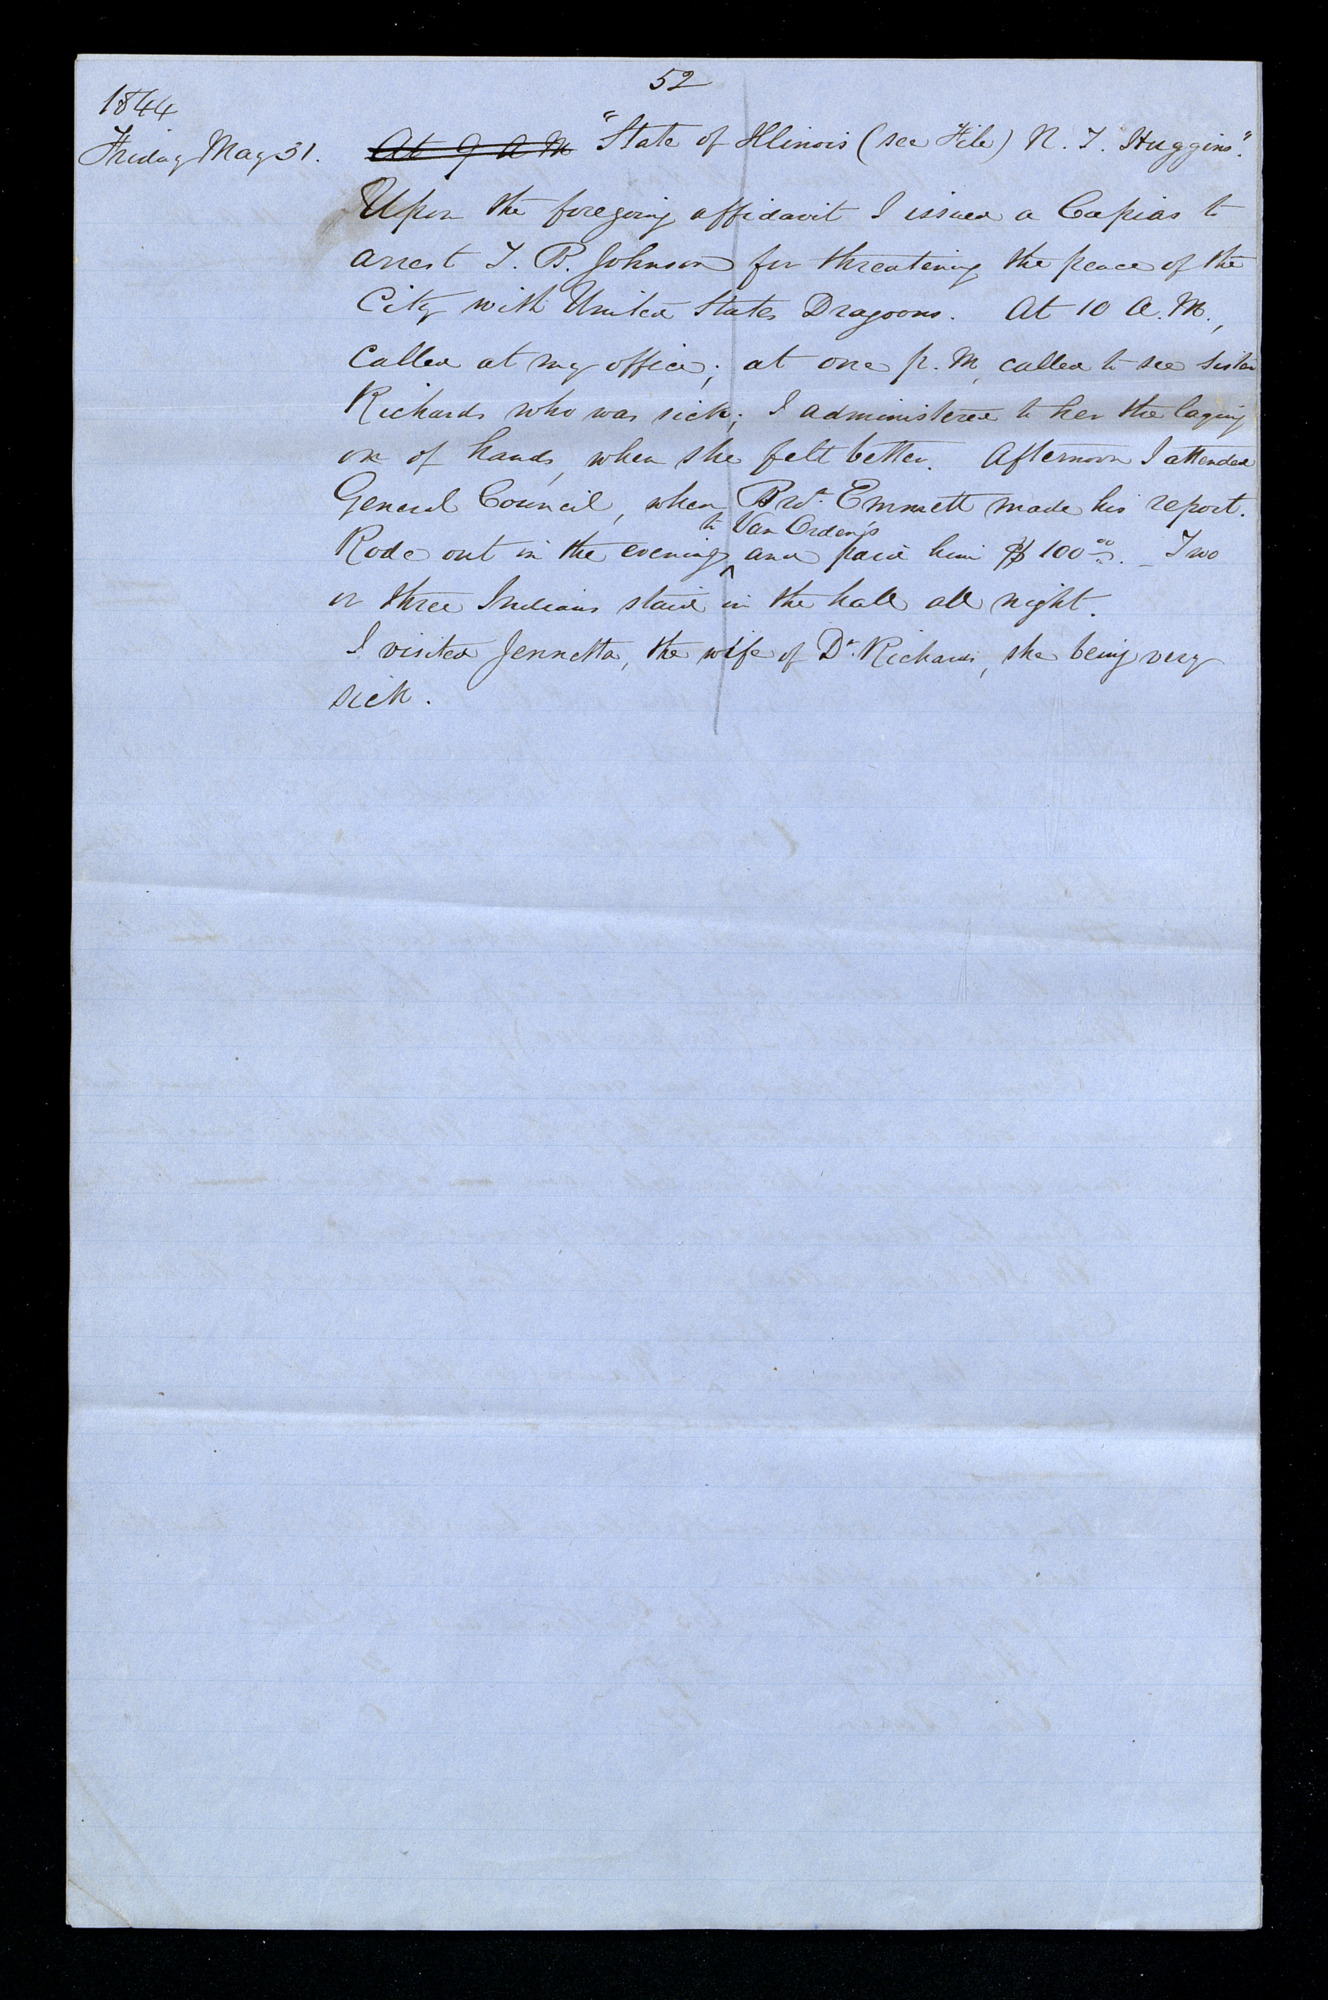 52
1844
Friday May 31. At 9 A M "State of Illinois (see File) N. T. Huggins".
Upon the foregoing affidavit I issued a Capias to
arrest T. B. Johnson for threatening the peace of the
City with United States Dragoons. At 10 A.M.,
called at my office; at one p. M, called to see sister
Richards who was sick; I administered to her the laying
on of hands, when she felt better. Afternoon I attended
General Council, when Bro. Emmett made his report.
to Van Orden's
Rode out in the evening ^ and paid him $100 00. _ Two
or three Indians staid in the hall all night.
I visited Jennetta, the wife of Dr. Richards, she being very
sick.